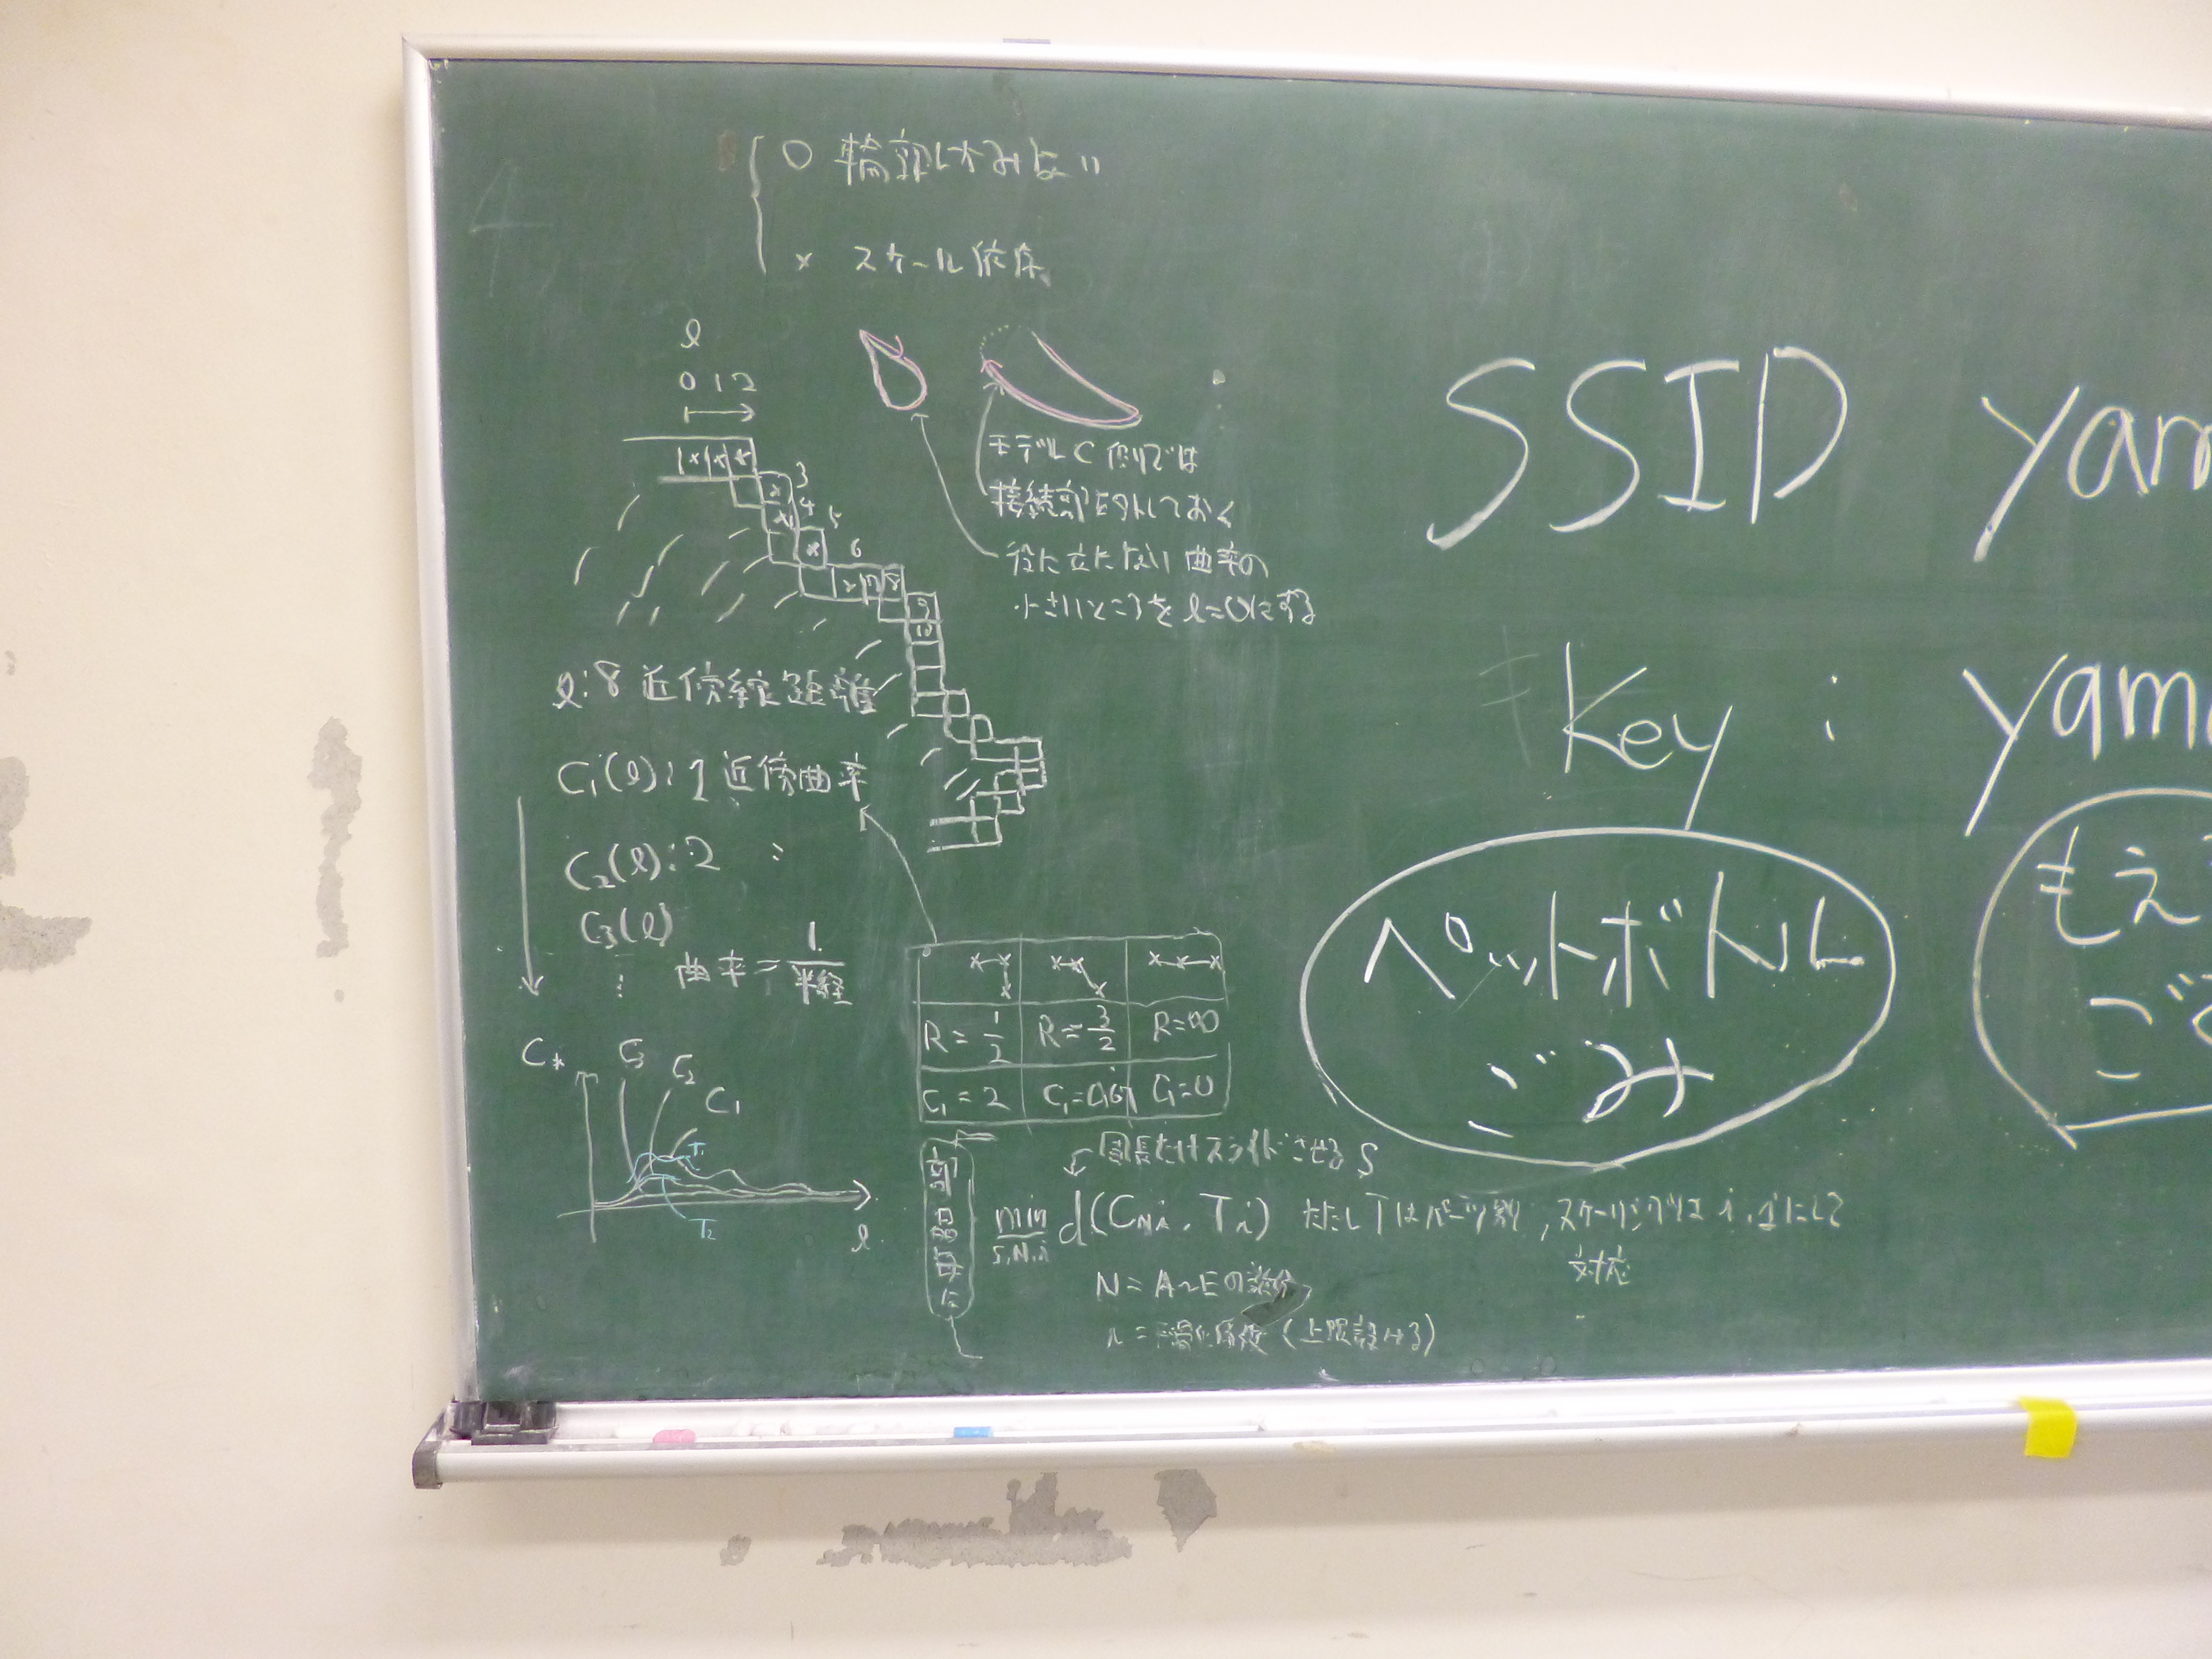 ○ 輪郭しかみない
× スケール依存
l
0 1 2
3
4
5
6
7 8
9
10
モデルC側では
接続部を外しておく
役に立たない曲率の
小さいところをl=0にする
l:8近傍線距離
C₁(l):1近傍曲率
C₂(l):2 〃
C₃(l)
⋮
曲率=1/半径
R=1/2 R=3/2 R=∞
C₁=2 C₁=0.67 C₁=0
C*
C₃
C₂
C₁
T₁
T₂
l
周長だけスライドさせる S
min d(C, T) ただしTはパーツ別, スケーリングは
S,N,i
対応
N=A~Eの
(上限設ける)
SSID yam
Key : yam
ペットボトル
ごみ
もえ
ご